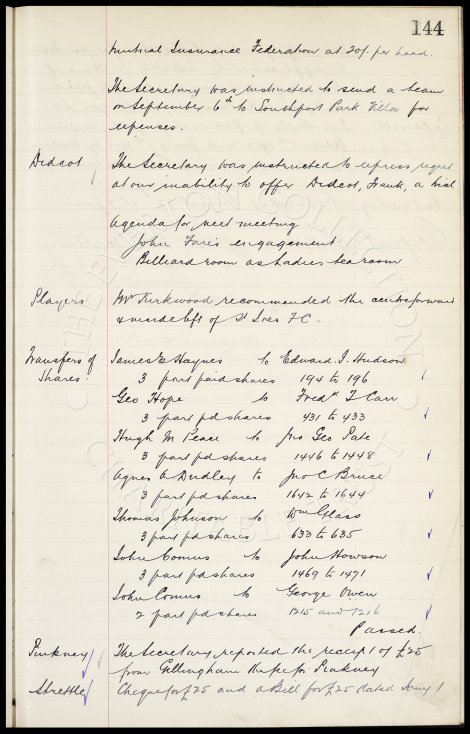 144
Mutual Insurance Federation at 20/- per head.
The Secretary was instructed to send a team
on September 6th to Southport Park Villa for
expenses.
Didcot The Secretary was instructed to express regret
at our inability to offer Didcot, Frank, a trial
Agenda for next meeting
John engagement
Billiard room as Ladies tea room
Players Mr Kirkwood recommended the centre forward
& inside left of St Ives FC.
Transfers of James E Haynes to Edward J. Hudson
Shares. 3 part paid shares 194 to 196
Geo Hope to Fredk T Carr
3 part pd shares 431 to 433
Hugh M Peace to Jno Geo Pate
3 part pd shares 1446 to 1448
Agnes A Dudley to Jno C Bruce
3 part pd shares 1642 to 1644
Thomas Johnson to Wm Glass
3 part pd shares 633 to 635
John Comus to John Howson
3 part pd shares 1469 to 1471
John Comus to George Owen
2 part pd shares 1215 and 1216
Passed.
Pinkney The Secretary reported the receipt of £25
from Gillingham the fee for Pinkney
Shrettle Cheque for £25 and a Bill for £25 dated Jany 1